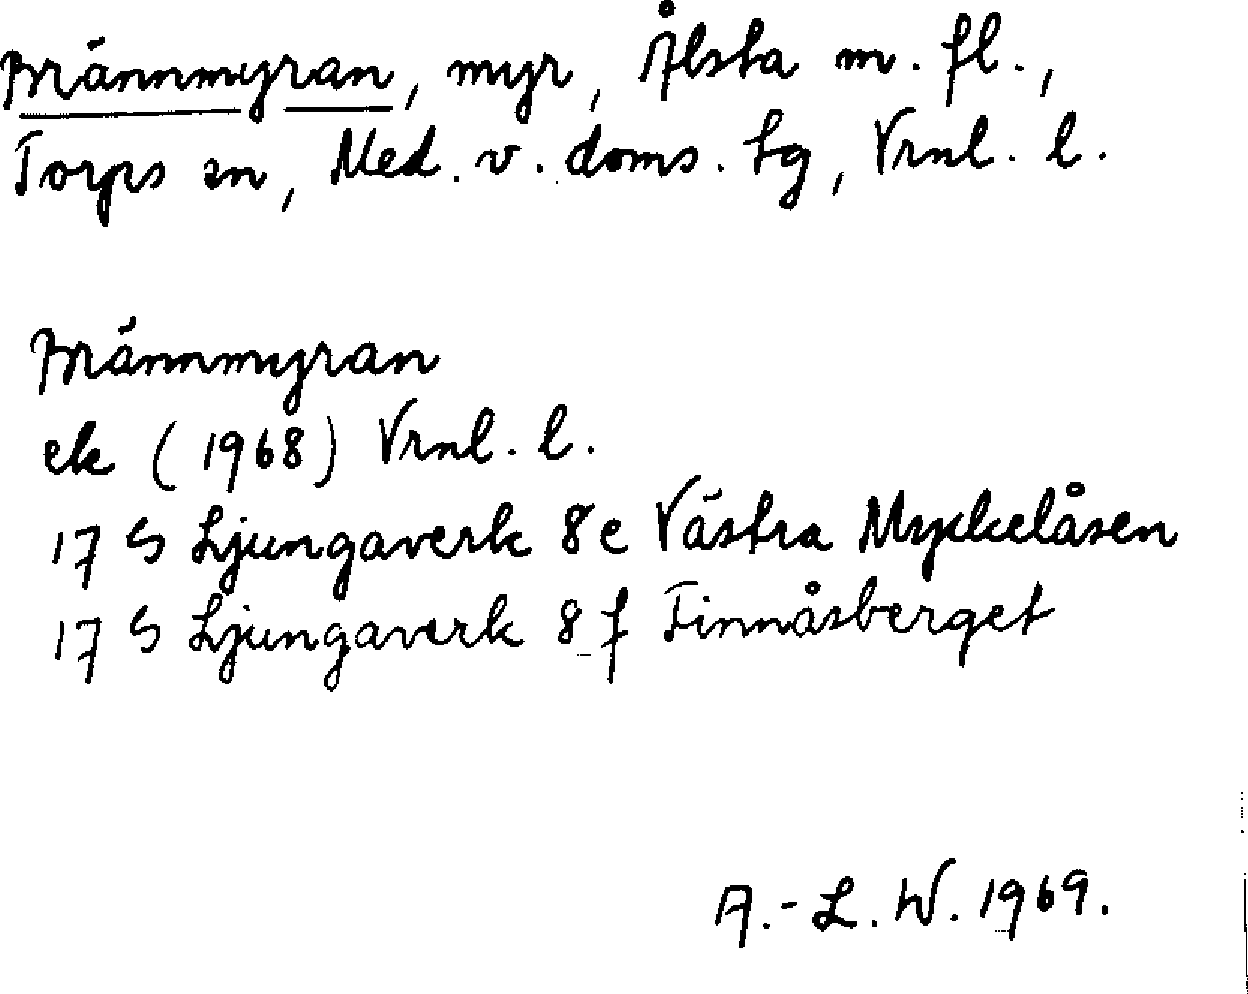 Brännmyran, myr, Ålsta m. fl.,
Torps sn, Med. v. doms. tg, Vrnl. l.
Brännmyran
ek (1968) Vrnl. l.
17 G Ljungaverk 8 e Västra Myckelåsen
17 G Ljungaverk 8 f Finnåsberget
A.-L. W. 1969.